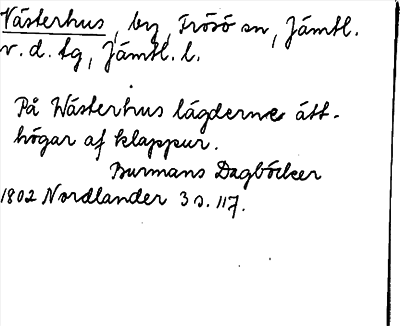 Västerhus, by, Frösö sn, Jämtl.
v. d. tg, Jämtl. l.
På Wästerhus lägderne ätt-
högar af klappur.
Burmans Dagböcker
1802 Nordlander 3 s. 117.